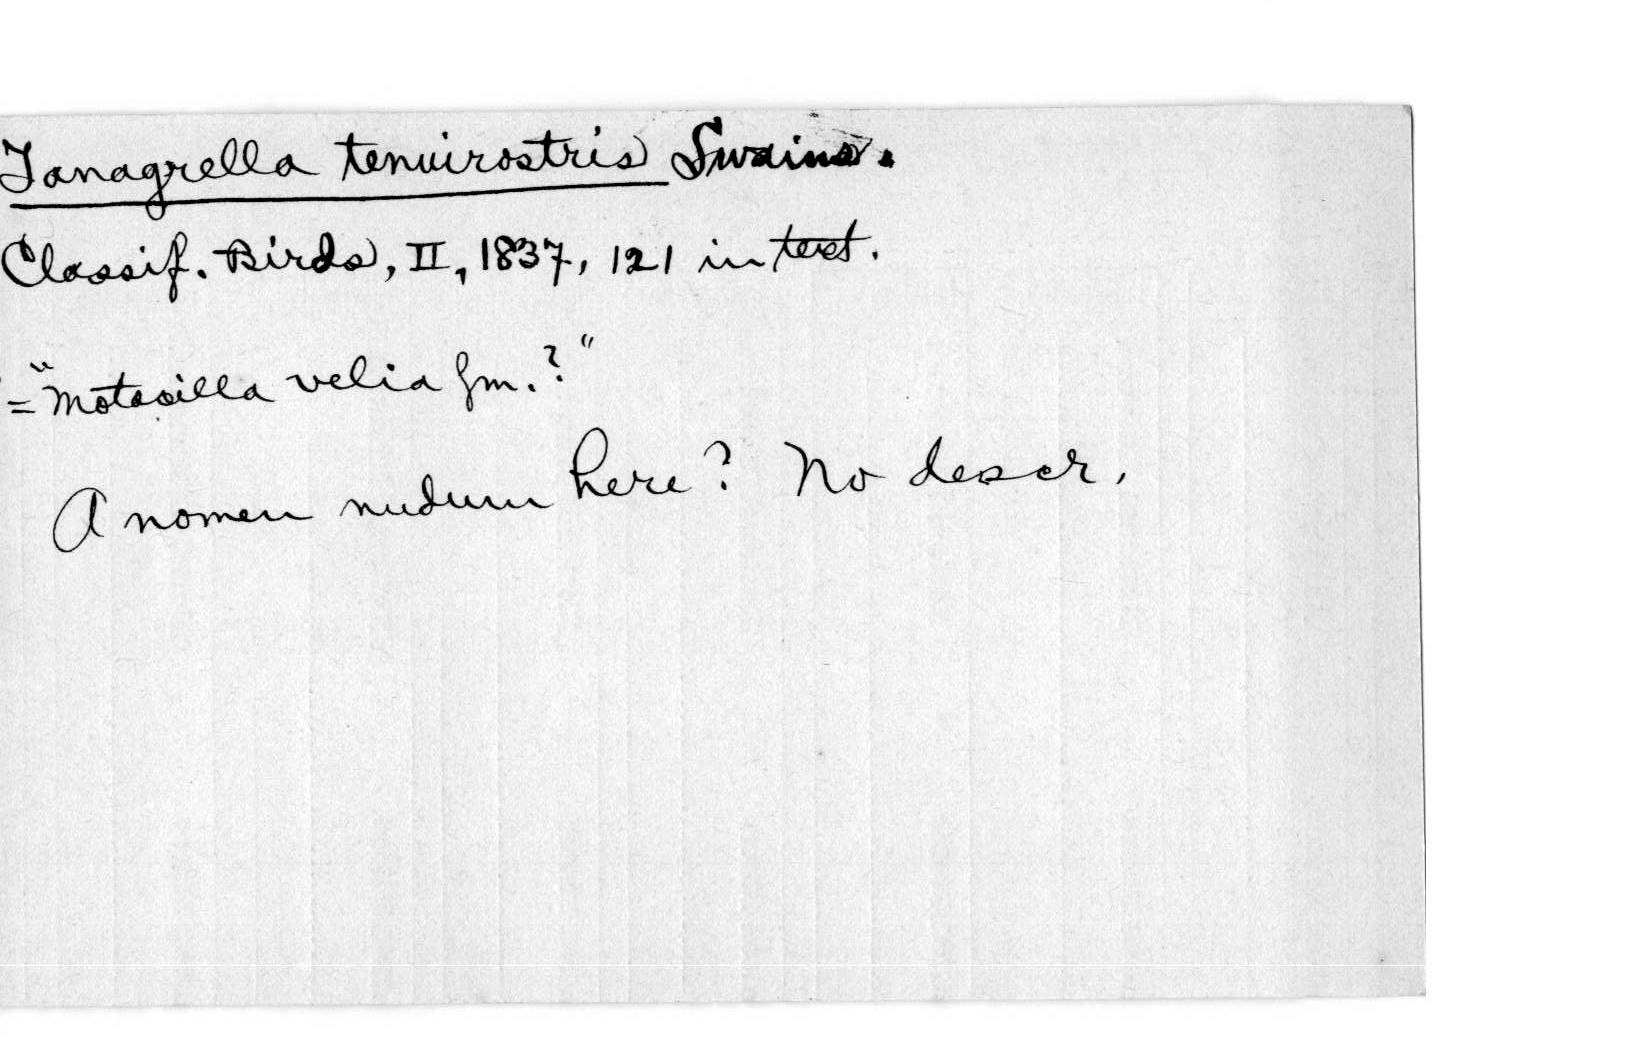 Tanagrella tenuirostris Swains.
Classif. Birds, II, 1837, 121 in text.
= "Motacilla velia Gm.?"
A nomen nudum here? No descr.